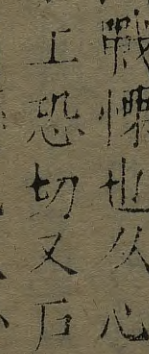 戰慄也从心
工恐切又后